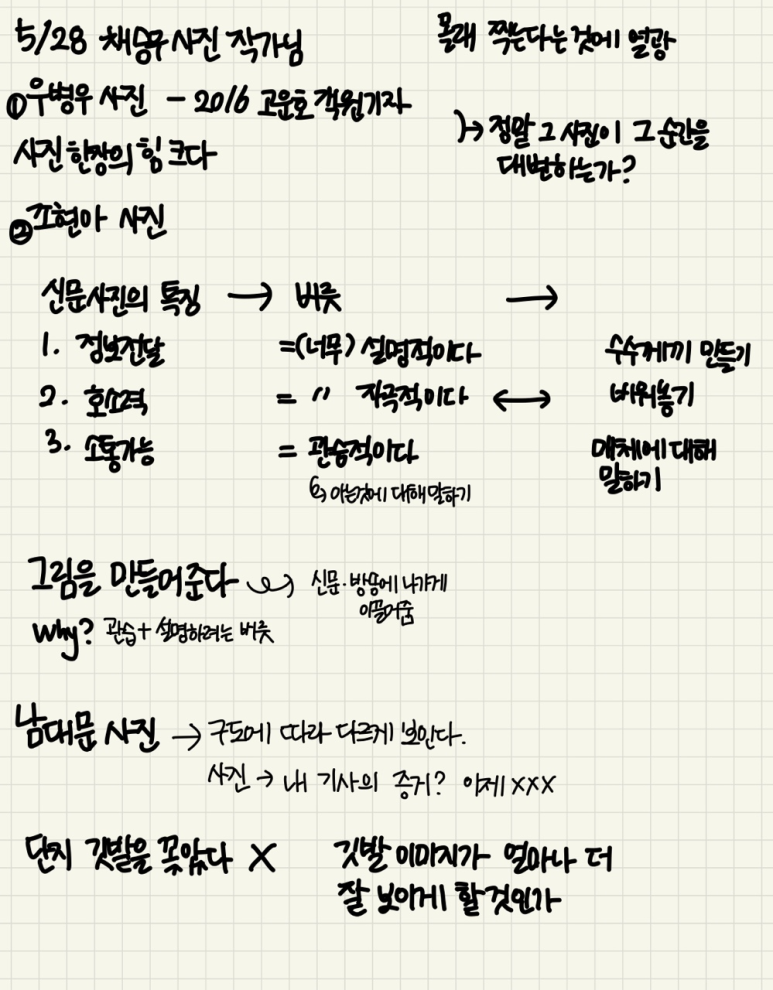 5/28 채승우 사진 작가님
몰래 찍는다는 것에 열광
① 우병우 사진 - 2016 고운호 객원기자
사진 한장의 힘 크다
→ 정말 그 사진이 그 순간을
대변하는가?
② 조현아 사진
신문사진의 특징 → 버릇 →
1. 정보전달 =(너무) 설명적이다 수수께끼 만들기
2. 호소력 = 〃 자극적이다 ↔ 비워놓기
3. 소통가능 = 관습적이다 매체에 대해
말하기
↳ 아는것에 대해 말하기
그림을 만들어준다 → 신문·방송에 나가게
이끌어줌
Why? 관습 + 설명하려는 버릇
남대문 사진 → 구도에 따라 다르게 보인다.
사진 → 내 기사의 증거? 이제 XXX
단지 깃발을 꽂았다 X 깃발 이미지가 얼마나 더
잘 보이게 할 것인가